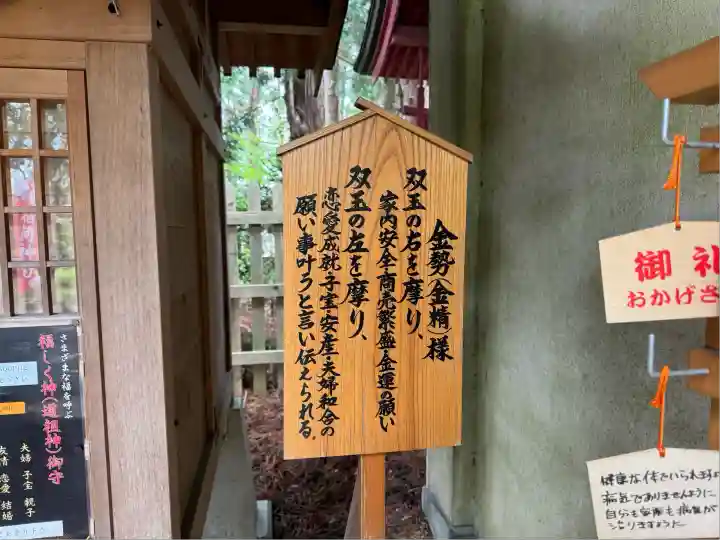 金勢(金精)様
双玉の右を摩り、
家内安全・商売繁盛・金運の願い
双玉の左を摩り、
恋愛成就・子宝・安産・夫婦和合の
願い事叶うと言い伝えられる。
さまざまな福を呼ぶ
福しく神(道祖神)御守
夫婦 子宝 親子
友情 恋愛 結婚
御礼
おかげさ
健康な体でいられますよ
病気でありませんように
自分も家族も病気が
治りますように